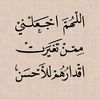 اللهُمَّ اجْعَلْنِي
مِمَّنْ تَغَيَّرَتْ
أَقْدَارُهُمْ لِلأَحْسَنِ